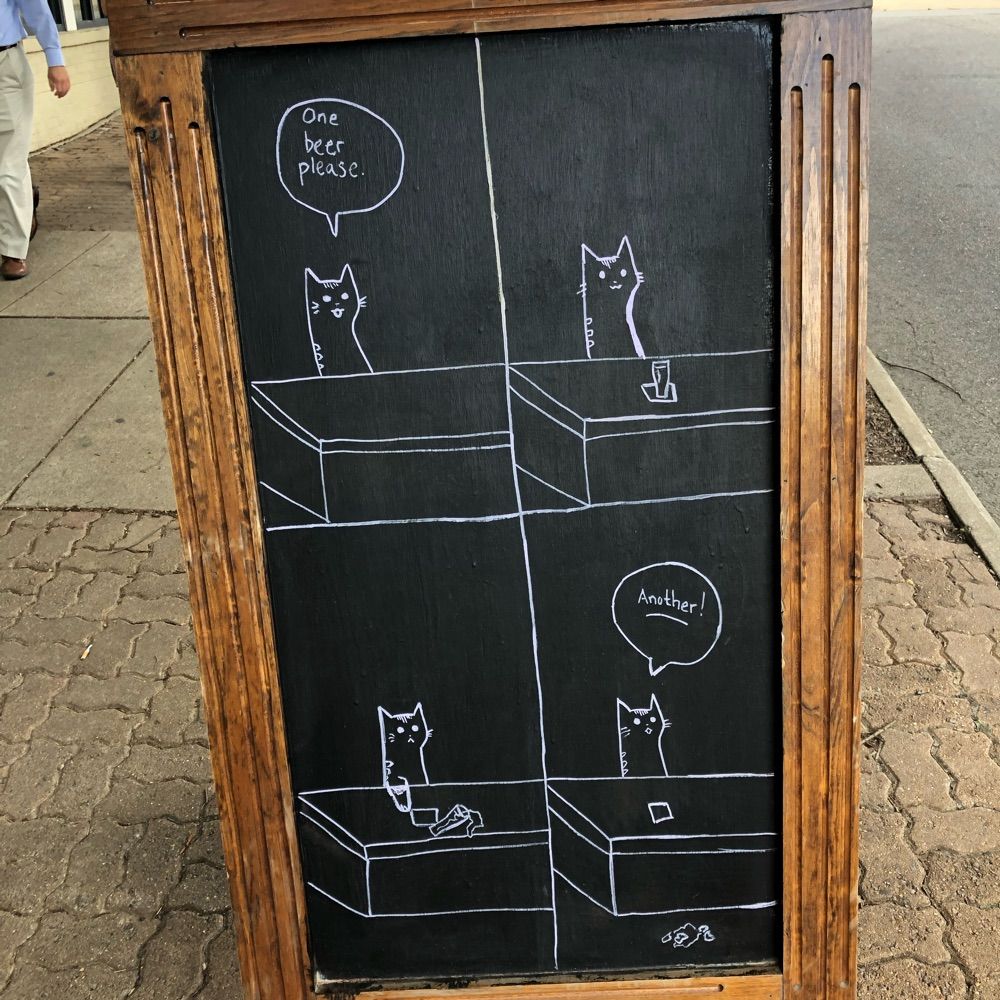 One
beer
please.
Another!